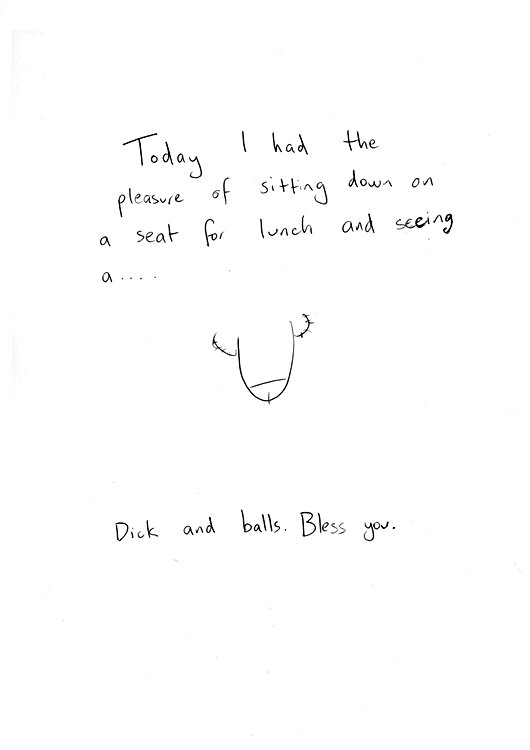 Today I had the
pleasure of sitting down on
a seat for lunch and seeing
a....
Dick and balls. Bless you.